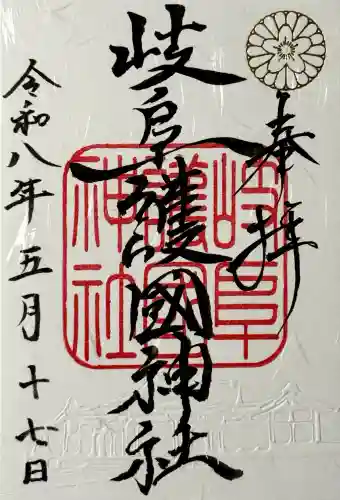 奉拝
岐阜護國神社
令和八年五月十七日
岐阜
護國
神社